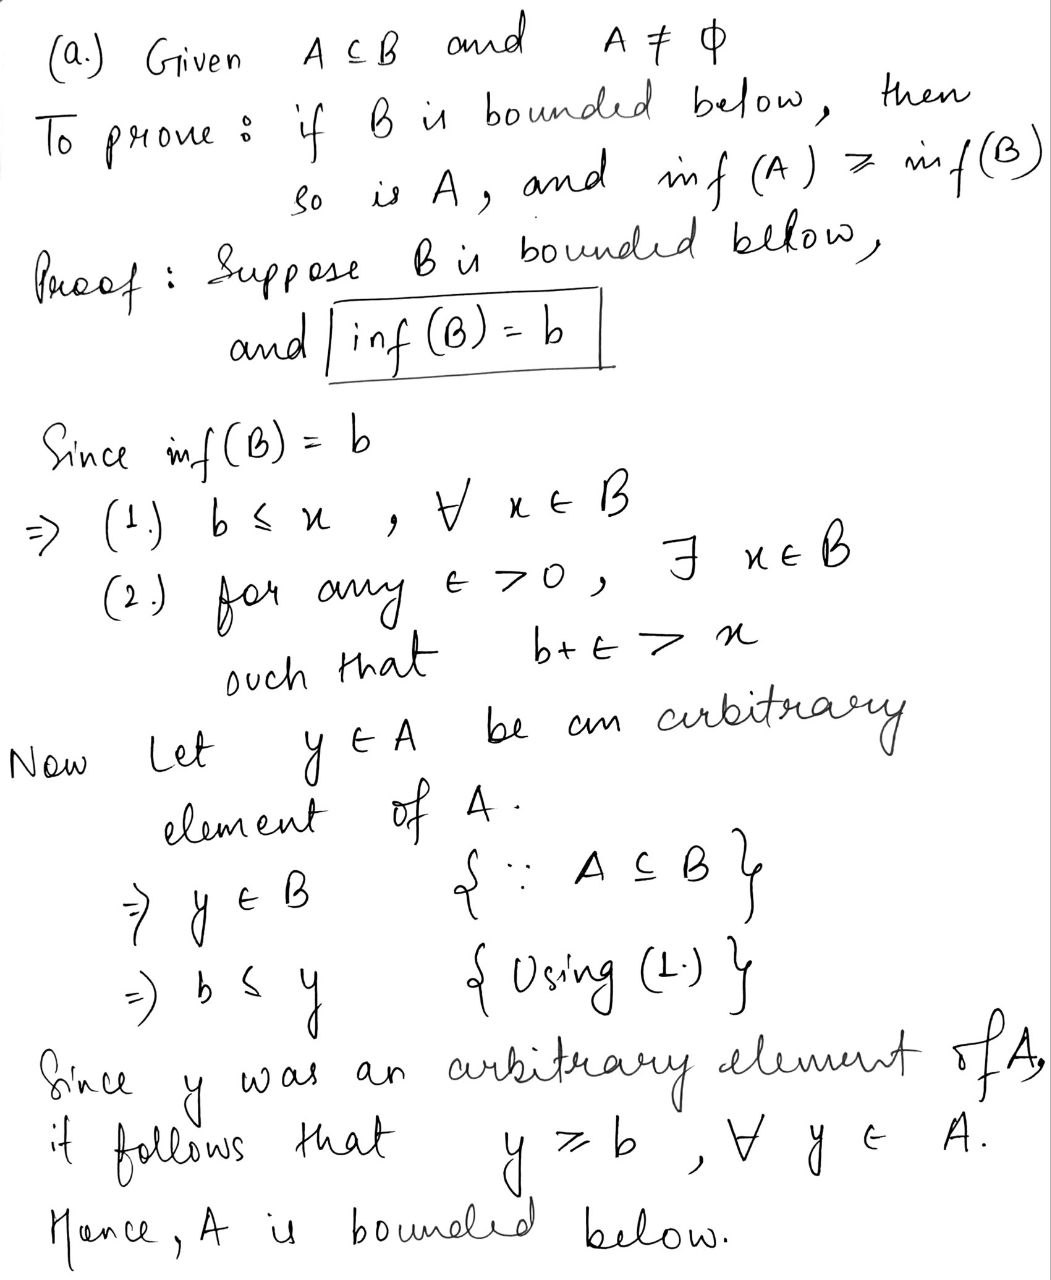 (a.) Given A ⊆ B and A ≠ ϕ
To prove : if B is bounded below, then
so is A, and inf (A) ≥ inf (B)
Proof : Suppose B is bounded below,
and inf (B) = b
Since inf (B) = b
⇒ (1.) b ≤ x , ∀ x ∈ B
(2.) for any ϵ > 0 , ∃ x ∈ B
such that b + ϵ > x
Now Let y ∈ A be an arbitrary
element of A.
⇒ y ∈ B { ∵ A ⊆ B }
⇒ b ≤ y { Using (1.) }
Since y was an arbitrary element of A,
it follows that y ≥ b , ∀ y ∈ A.
Hence, A is bounded below.